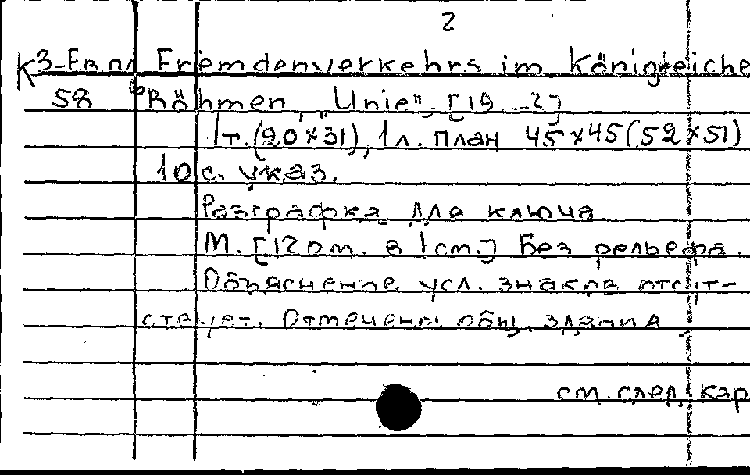 2
К3-Ев.пл Fremdenverkehrs im Königreiche
58 Böhmen, "Unie", [19 ..?]
1т.(20×31), 1л. план 45×45(52×51)
10 с. указ.
Разграфка для ключа
М. [120м. в 1см.] Без рельефа.
Объяснение усл. знаков отсут-
ствует. Отмечены общ. здания
см. след. кар